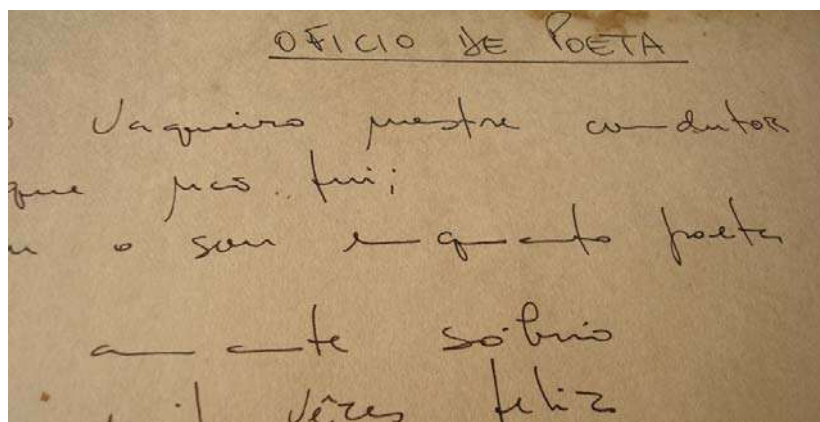 OFICIO DE POETA
o Vaqueiro mestre condutor
que não fui;
o sou enquanto poeta
amante sóbrio
mil vêzes feliz